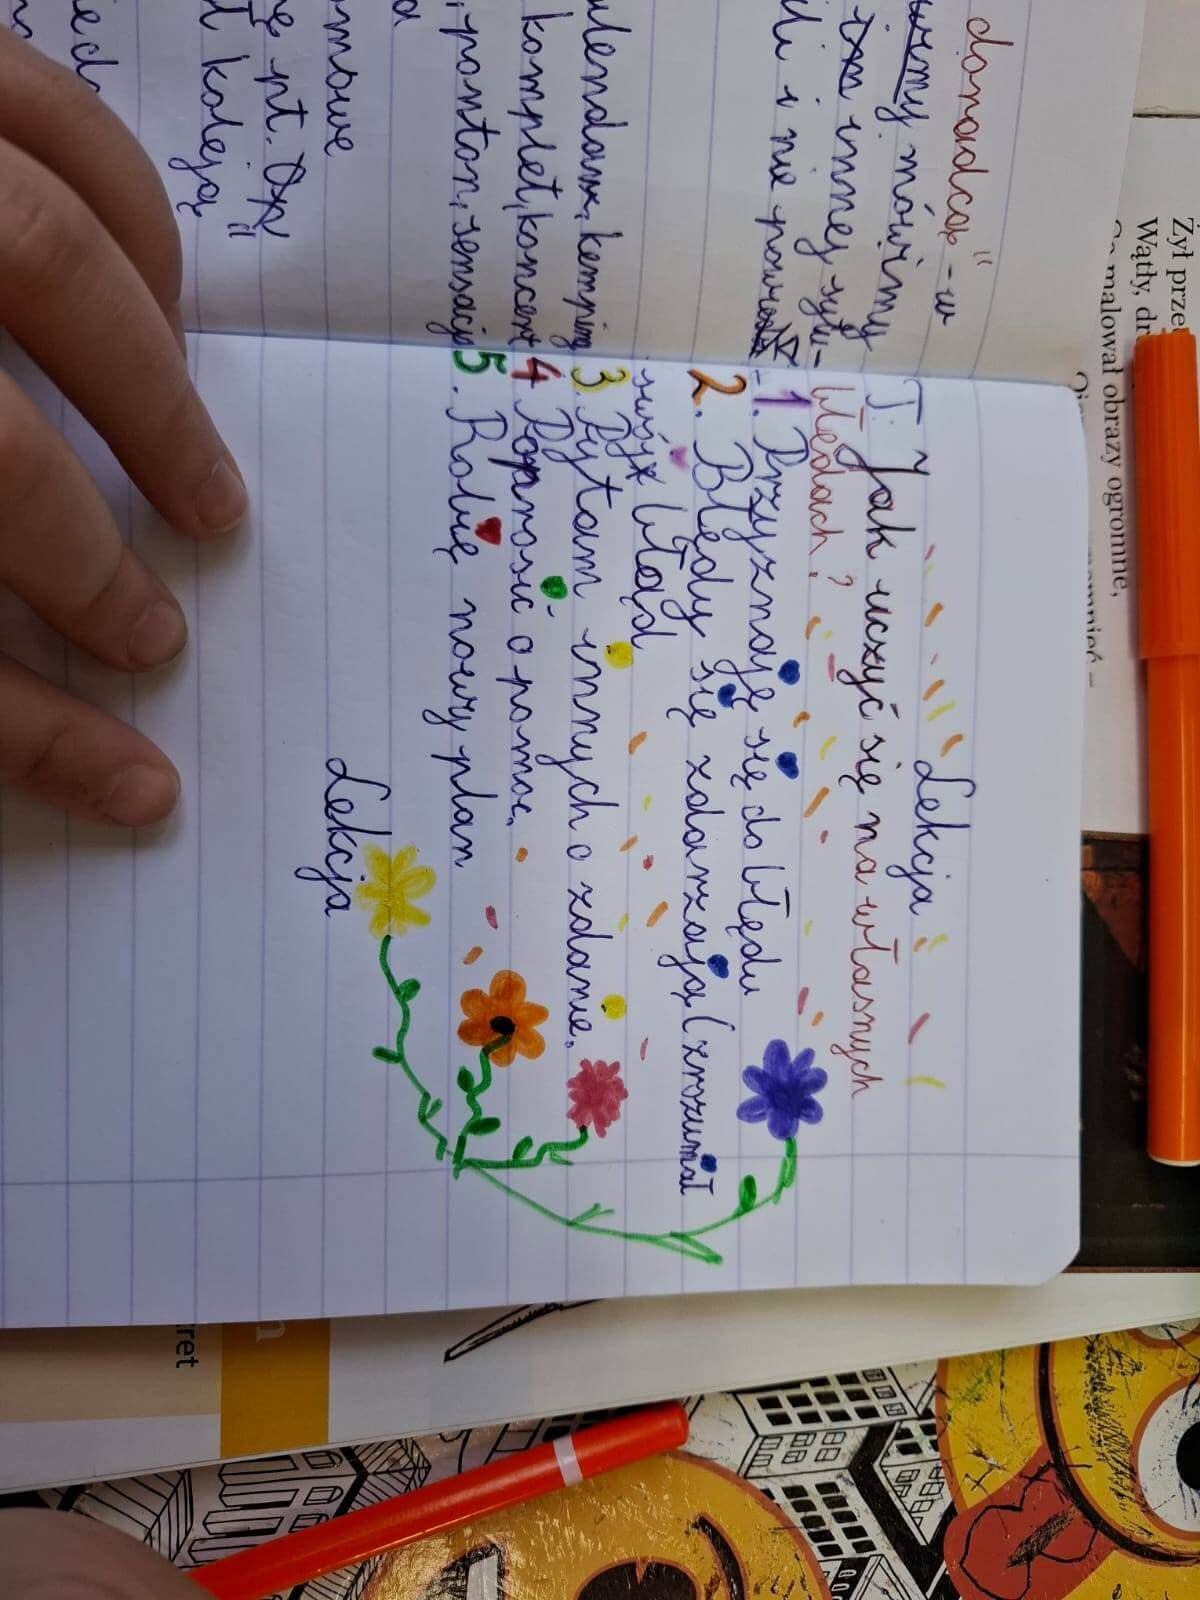 donadcą" - w
mówimy
innej sytu-
i nie powie
kalendarz, kemping
komplet, koncert
, ponton, sensacja
pt.
koleją
Lekcja
T: Jak uczyć się na własnych
błędach?
1. Przyznaję się do błędu
2. Błędy się zdarzają (zrozumieć
swój błąd
3. Pytam innych o zdanie.
4. Poprosić o pomoc.
5. Robię nowy plan
Lekcja
Żył prze
Wątły, dr
malował obrazy ogromne,
ret